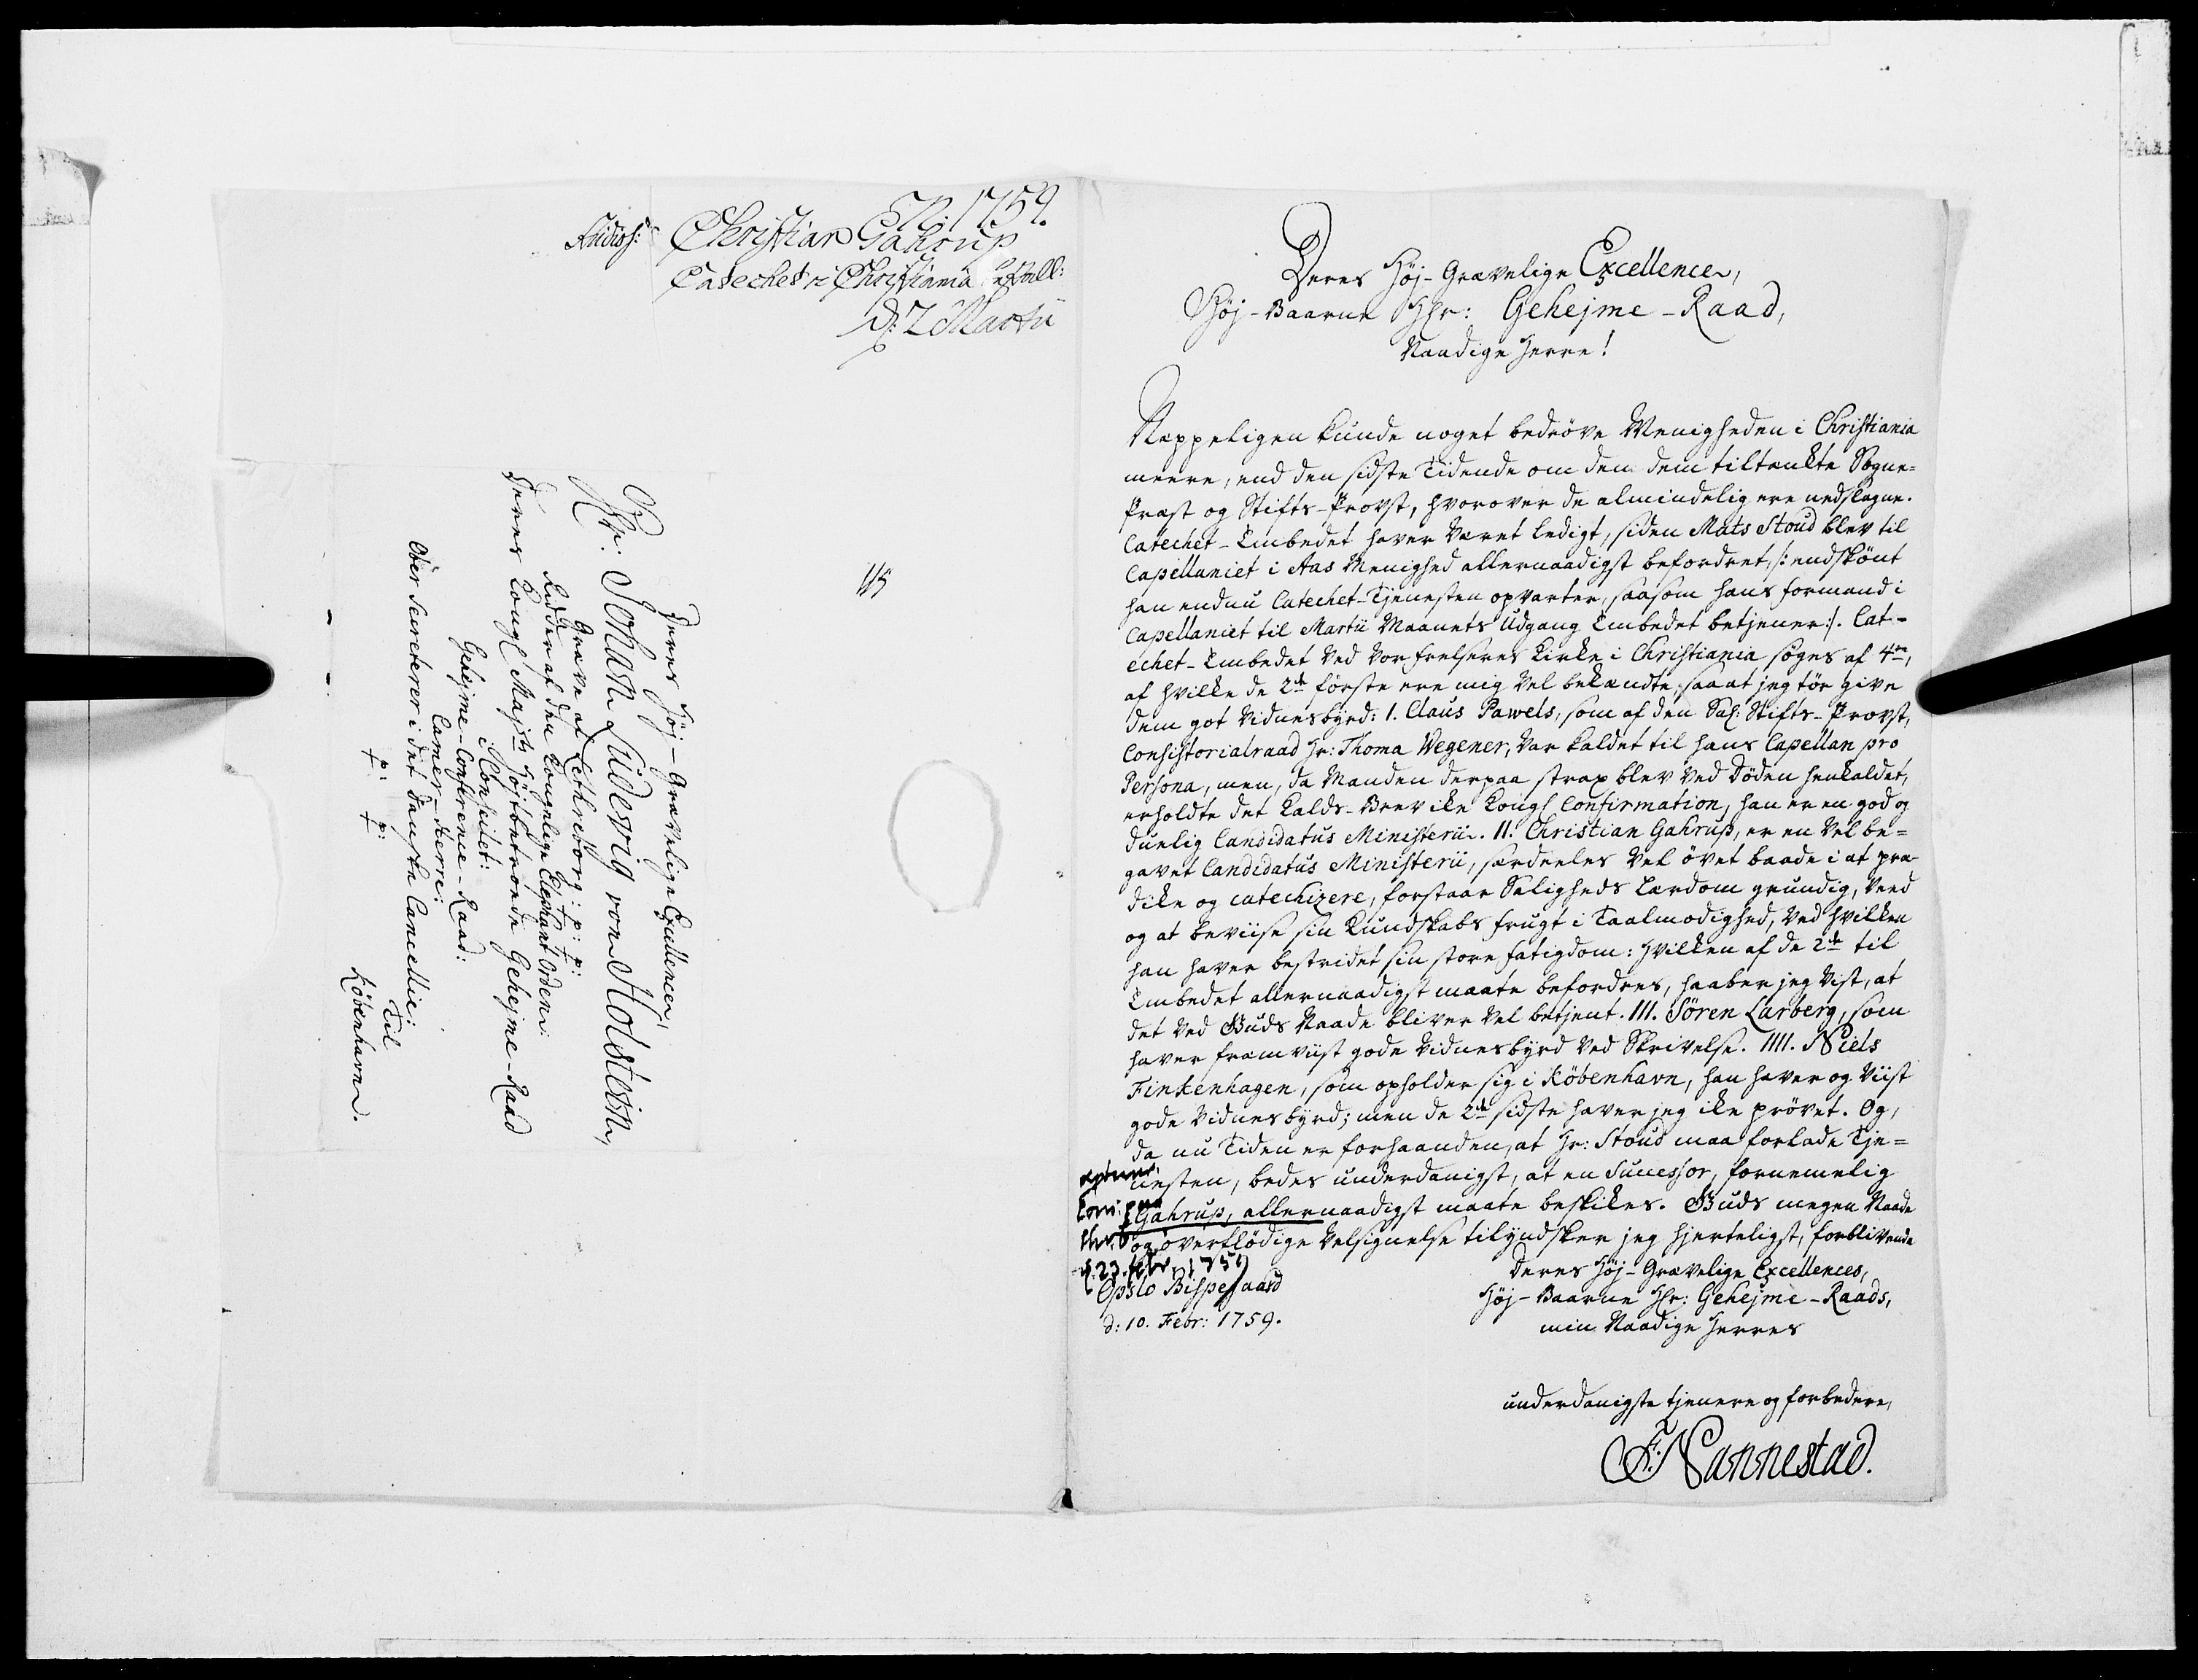 1759.
Christian Gahrup
Catechet i Christiania
d: 2 Martii
115
Deres Høj-Grævelige Excellence,
Hr: Johan Ludevig von Holstein,
Græve af Lethreborg: p: p:
Ridder af den Kongelige Elephant Orden:
Deres Kongl Majsts Højbetroede Gehejme-Raad
i Conseilet:
Gehejme-Conference-Raad:
Camer-Herre:
Ober Secreterer i det danske Cancellie:
p: p:
Til
København.
Deres Høj-Grævelige Excellence,
Høj-Baarne Hr: Gehejme-Raad,
Naadige Herre!
Næppeligen kunde noget bedrøve Menigheden i Christiania
meere, end den sidste Tidende om den dem tiltænkte Sogne-
Præst og Stifts-Provst, hvorover de almindelig ere nedslagne.
Catechet-Embedet haver været ledigt, siden Mats Stoud blev til
Capellaniet i Aas Menighed allernaadigst befordret, /: endskönt
han endnu Catechet-Tjenesten opvarter, saasom hans formand i
Capellaniet til Martii Maanets Udgang Embedet betjener :/. Cat-
echet-Embedet ved Vor Frelseres Kirke i Christiania søges af 4re,
af hvilke de 2de förste ere mig vel bekændte, saa at jeg tör give
dem got Vidnesbyrd: 1. Claus Pawels, som af den Sal: Stifts-Provst,
Consistorialraad Hr: Thoma Wegener, var kaldet til hans Capellan pro
Persona, men, da Manden derpaa strax blev ved Döden henkaldet,
erholdte det Kalds-Brev ike Kongl Confirmation, han er en god og
duelig Candidatus Ministerii. II. Christian Gahrup, er en vel be-
gavet Candidatus Ministerii, særdeeles vel övet baade i at præ-
dike og catechizere, forstaar Saligheds Lærdom grundig, veed
og at beviise sin Kundskabs frugt i Taalmodighed, ved hvilken
han haver bestridet sin store fatigdom: hvilken af de 2de til
Embedet allernaadigst maate befordres, haaber jeg vist, at
det ved Guds Naade bliver vel betjent. III. Sören Larberg, som
haver fremviist gode Vidnesbyrd ved Skrivelse. IIII. Niels
Finkenhagen, som opholder sig i København, han haver og viist
gode Vidnesbyrd; men de 2de sidste haver jeg ike prövet. Og,
da nu Tiden er forhaanden, at Hr: Stoud maa forlade Tje-
nesten, bedes underdanigst, at en Successor, fornemelig
Gahrup, allernaadigst maate beskikes. Guds megen Naade
og overflödige Velsignelse tilyndsker jeg hjerteligst, forblivende
d. 23. febr. 1759
Opslo Bispegaard
d: 10. Febr: 1759.
Deres Høj-Grævelige Excellences,
Høj-Baarne Hr: Gehejme-Raads,
min Naadige Herres
underdanigste tjenere og forbedere,
F. Nannestad.